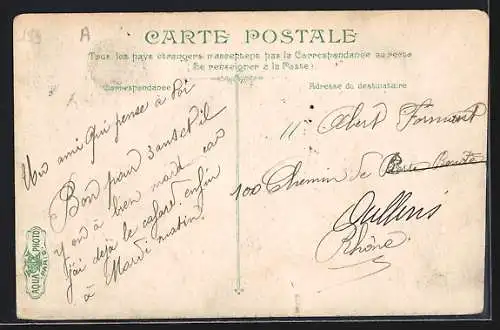 A
CARTE POSTALE
Tous les pays étrangers n'acceptent pas la Correspondance au recto
(Se renseigner à la Poste)
Correspondance
Adresse du destinataire
Un ami qui pense à toi
Bon pour 3 ans et il
y en à bien mare car
j'ai déjà le cafard enfin
à Mardi matin
Albert
100 Chemin de
Oullins
Rhône
AQUA PHOTO
PARIS